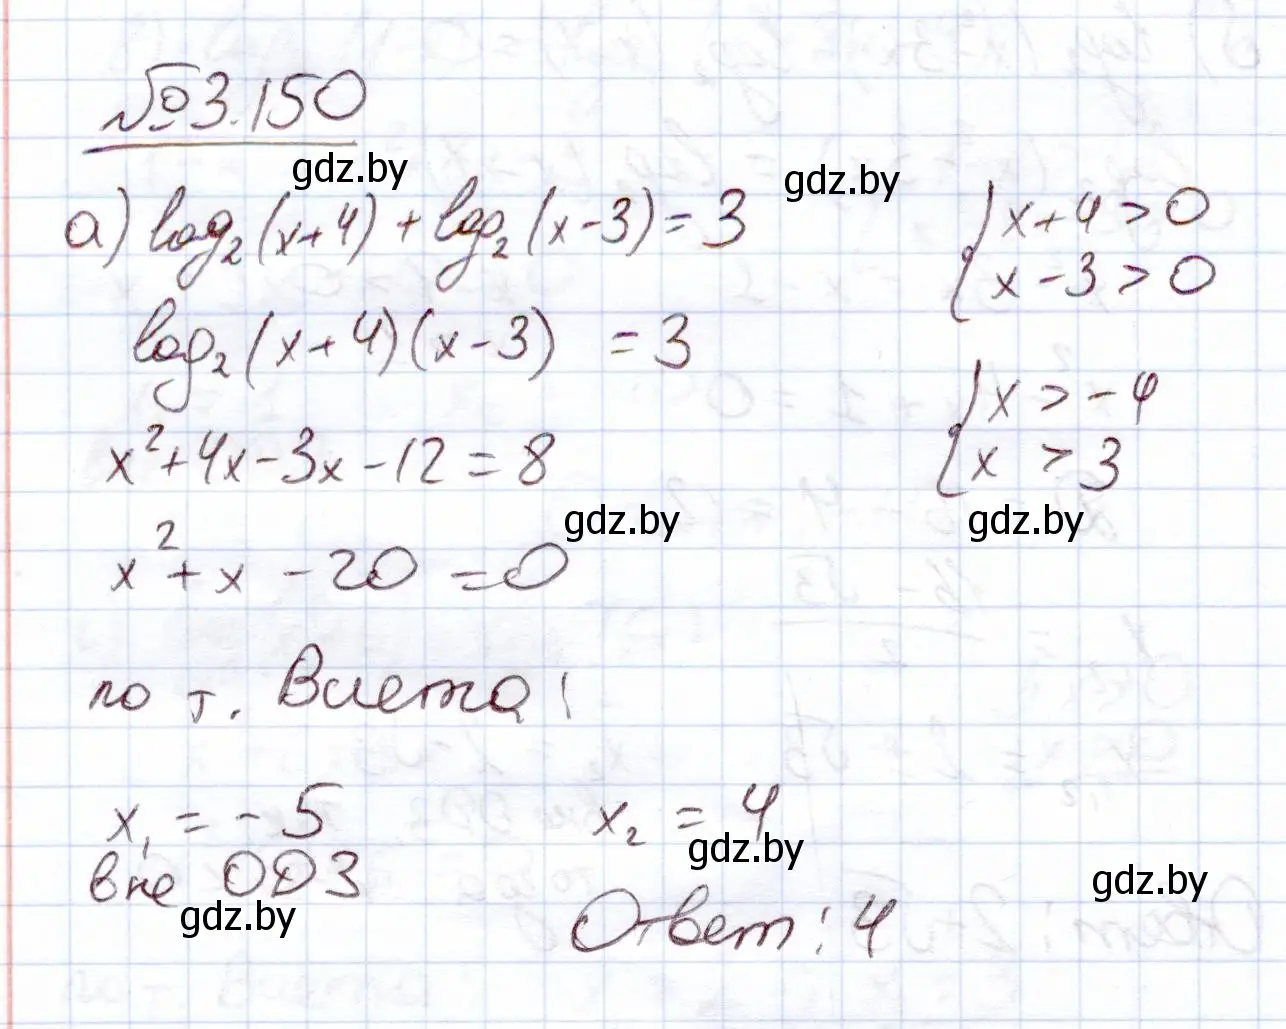 №3.150
gdz.by
gdz.by
а) log₂(x+4) + log₂(x-3) = 3
{ x+4 > 0
x-3 > 0
log₂(x+4)(x-3) = 3
{ x > -4
x > 3
x²+4x-3x-12=8
gdz.by
gdz.by
x²+x-20=0
по т. Виета:
x₁ = -5
x₂ = 4
gdz.by
вне ОДЗ
gdz.by
gdz.by
Ответ: 4